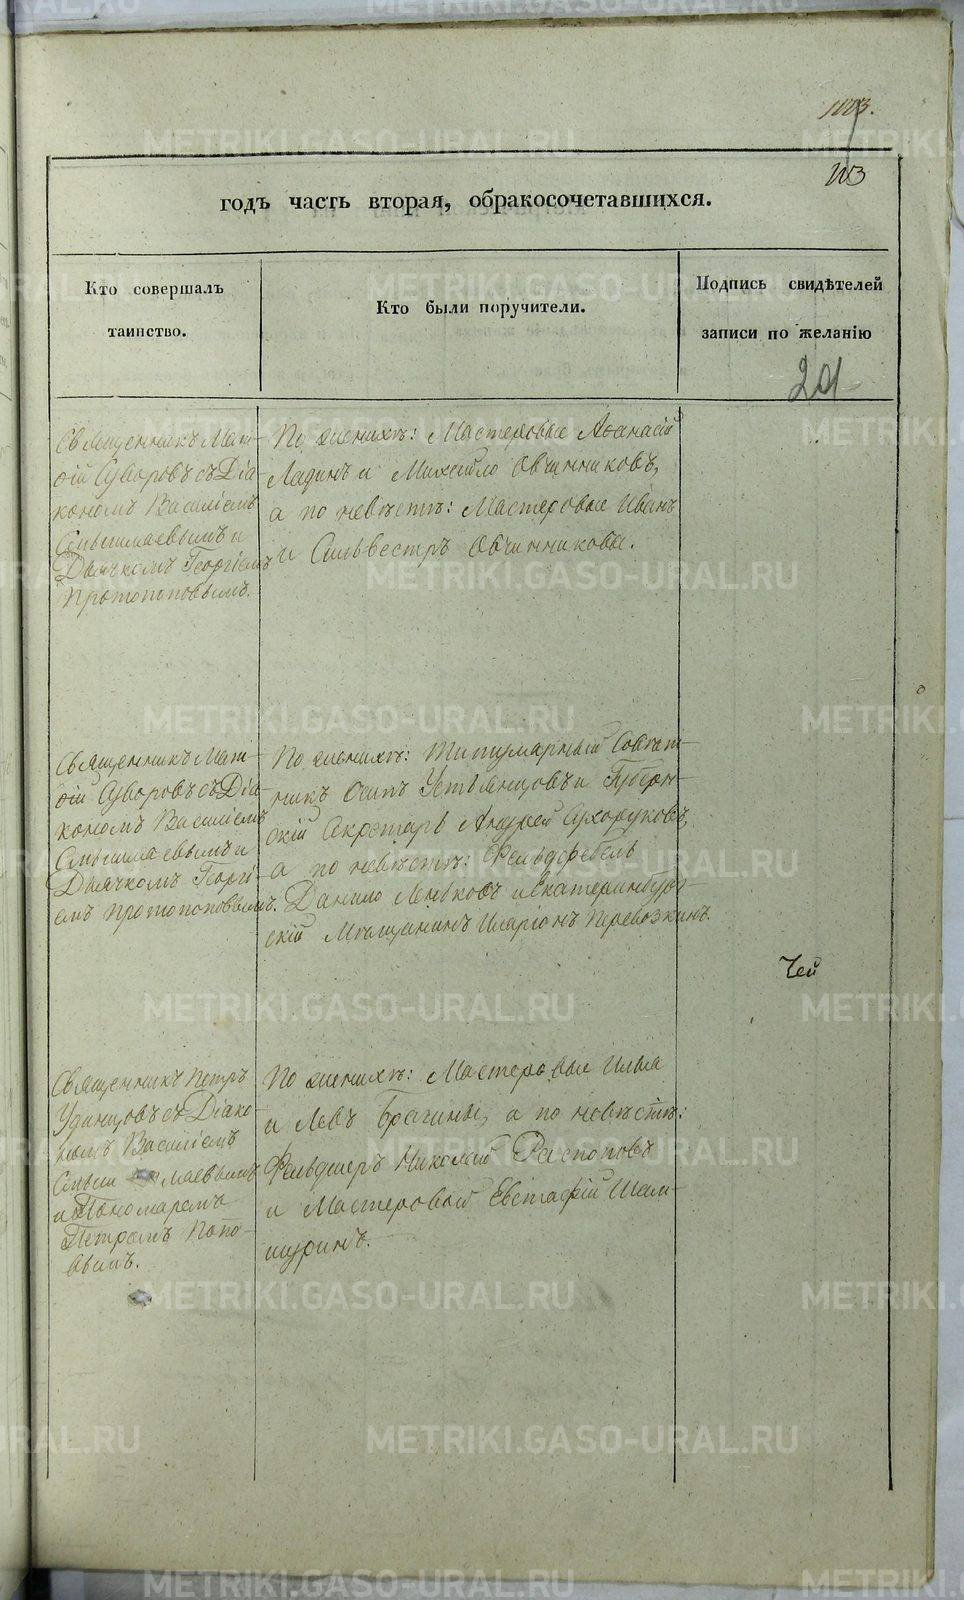 113
годъ часть вторая, обракосочетавшихся.
Кто совершалъ таинство.
Кто были поручители.
Подпись свидѣтелей записи по желанію
201
Священникъ Мат-
ѳій Суворовъ съ Діа-
кономъ Василіемъ
Смышляевымъ и
Дьячкомъ Георгіемъ
Протопоповымъ.
По женихѣ: Мастеровые Аѳанасій
Ладинъ и Михайло Овчинниковъ,
а по невѣстѣ: Мастеровые Иванъ
и Сильвестръ Овчинниковы.
Священникъ Мат-
ѳій Суворовъ съ Діа-
кономъ Василіемъ
Смышляевымъ и
Дьячкомъ Георгі-
емъ Протопоповымъ.
По женихѣ: Титулярный Совѣт-
никъ Осипъ Устьянцовъ и Губерн-
скій Секретарь Андрей Сухоруковъ,
а по невѣстѣ: Фельдфебель
Данило Леньковъ и Екатеринбург-
скій Мѣщанинъ Иларіонъ Перевозкинъ.
Священникъ Петръ
Удинцовъ съ Діако-
номъ Василіемъ
и Пономаремъ
Петромъ Попо-
вымъ.
По женихѣ: Мастеровые Илья
и Левъ Брагины, а по невѣстѣ:
Фельдшеръ Николай Распоповъ
и Мастеровый Евстафій Шам-
шуринъ.
METRIKI.GASO-URAL.RU